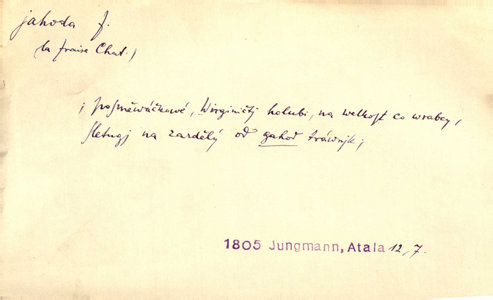 jahoda f.
(la fraise Chat.)
; posměwáčkowé, Wirginičtj holubi, na welkost co wrabcy,
sletugj na zardělý od gahod tráwnjk;
1805 Jungmann, Atala 12,7.